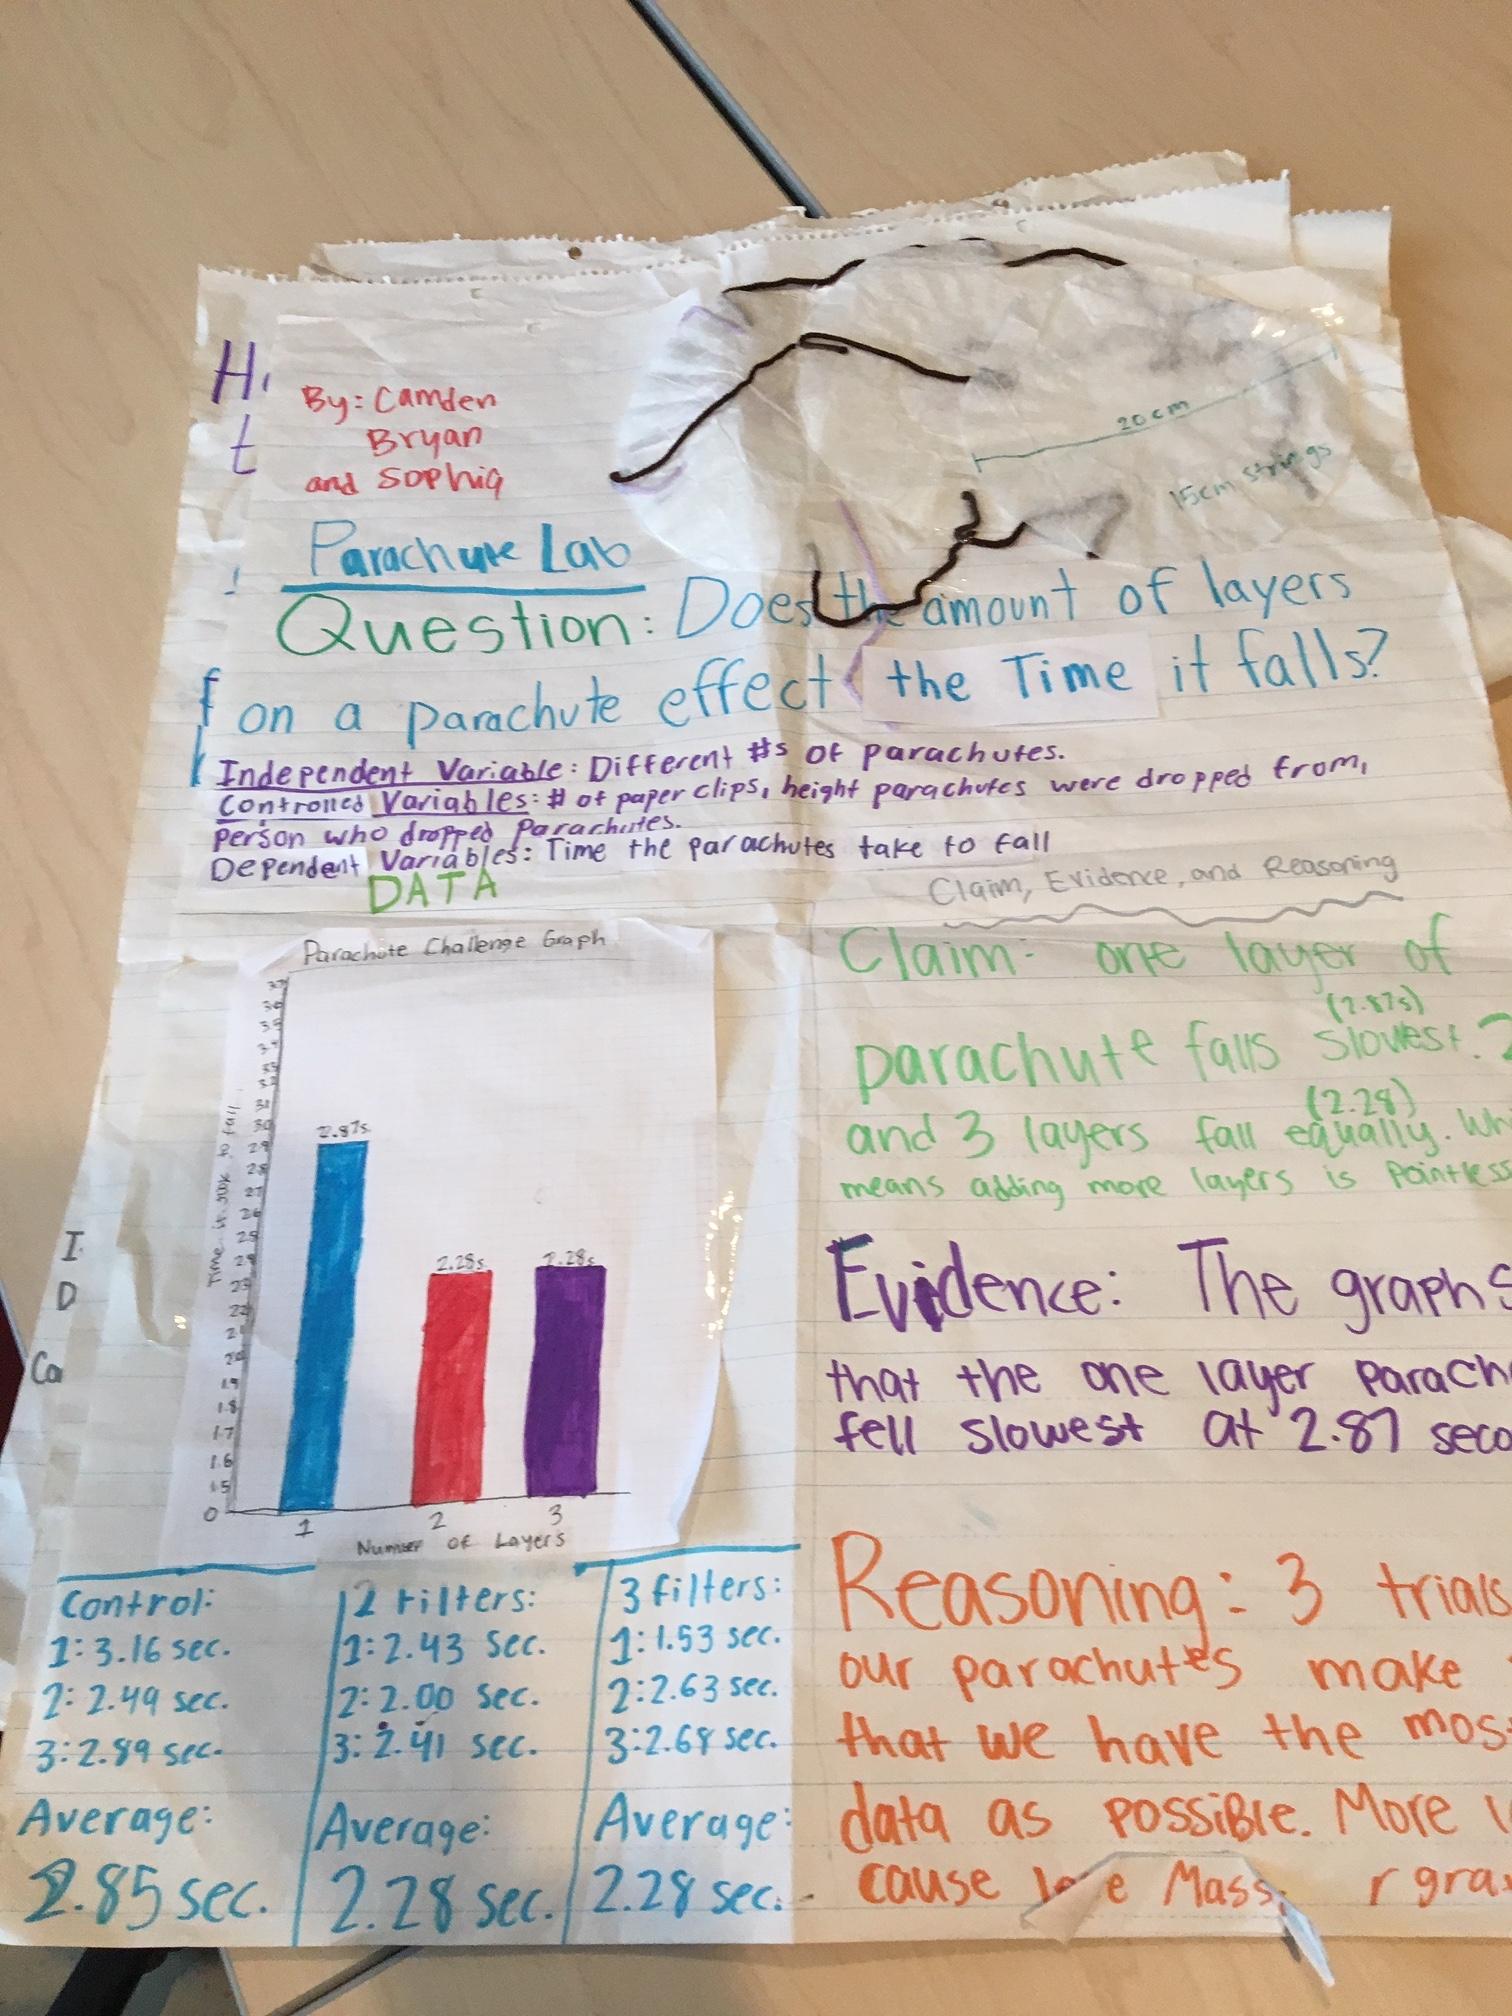 By: Camden
Bryan
and Sophia
20cm
15cm strings
Parachute Lab
Question: Does the amount of layers
on a parachute effect the Time it falls?
Independent Variable: Different #s of parachutes.
Controlled Variables: # of paper clips, height parachutes were dropped from,
person who dropped parachutes.
Dependent Variables: Time the parachutes take to fall
DATA
Parachute Challenge Graph
37
36
35
34
33
32
31
30
29
28
27
26
25
24
23
22
21
20
1.9
1.8
1.7
1.6
1.5
0
Time it took to fall
2.87s
2.28s
2.28s
1 2 3
Number of Layers
Control:
1: 3.16 sec.
2: 2.49 sec.
3: 2.89 sec.
Average:
2.85 sec.
2 Filters:
1: 2.43 sec.
2: 2.00 sec.
3: 2.41 sec.
Average:
2.28 sec.
3 filters:
1: 1.53 sec.
2: 2.63 sec.
3: 2.68 sec.
Average:
2.28 sec.
Claim, Evidence, and Reasoning
Claim: one layer of
(2.87s)
parachute falls slowest. 2
(2.28)
and 3 layers fall equally. Wh
means adding more layers is pointless
Evidence: The graph s
that the one layer parach
fell slowest at 2.87 seco
Reasoning: 3 trials
our parachutes make
that we have the mos
data as possible. More
cause Mass, r gra